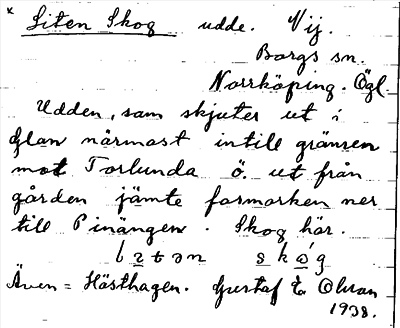 x Liten Skog udde. Vij.
Borgs sn.
Norrköping. Ögl.
Udden, som skjuter ut i
Glan närmast intill gränsen
mot Torlunda ö. ut från
gården jämte farmarken ner
till Pinängen. Skog här.
Även = Hästhagen. Gustaf
1938.